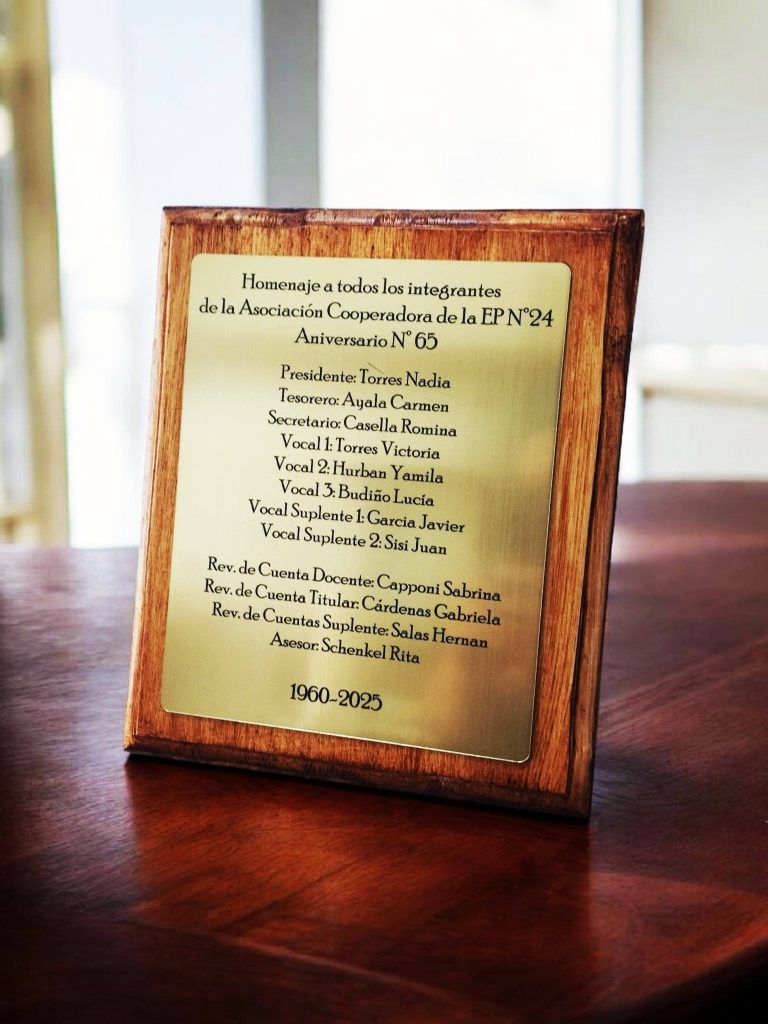 Homenaje a todos los integrantes
de la Asociación Cooperadora de la EP N°24
Aniversario N° 65
Presidente: Torres Nadia
Tesorero: Ayala Carmen
Secretario: Casella Romina
Vocal 1: Torres Victoria
Vocal 2: Hurban Yamila
Vocal 3: Budiño Lucía
Vocal Suplente 1: Garcia Javier
Vocal Suplente 2: Sisi Juan
Rev. de Cuenta Docente: Capponi Sabrina
Rev. de Cuenta Titular: Cárdenas Gabriela
Rev. de Cuentas Suplente: Salas Hernan
Asesor: Schenkel Rita
1960-2025